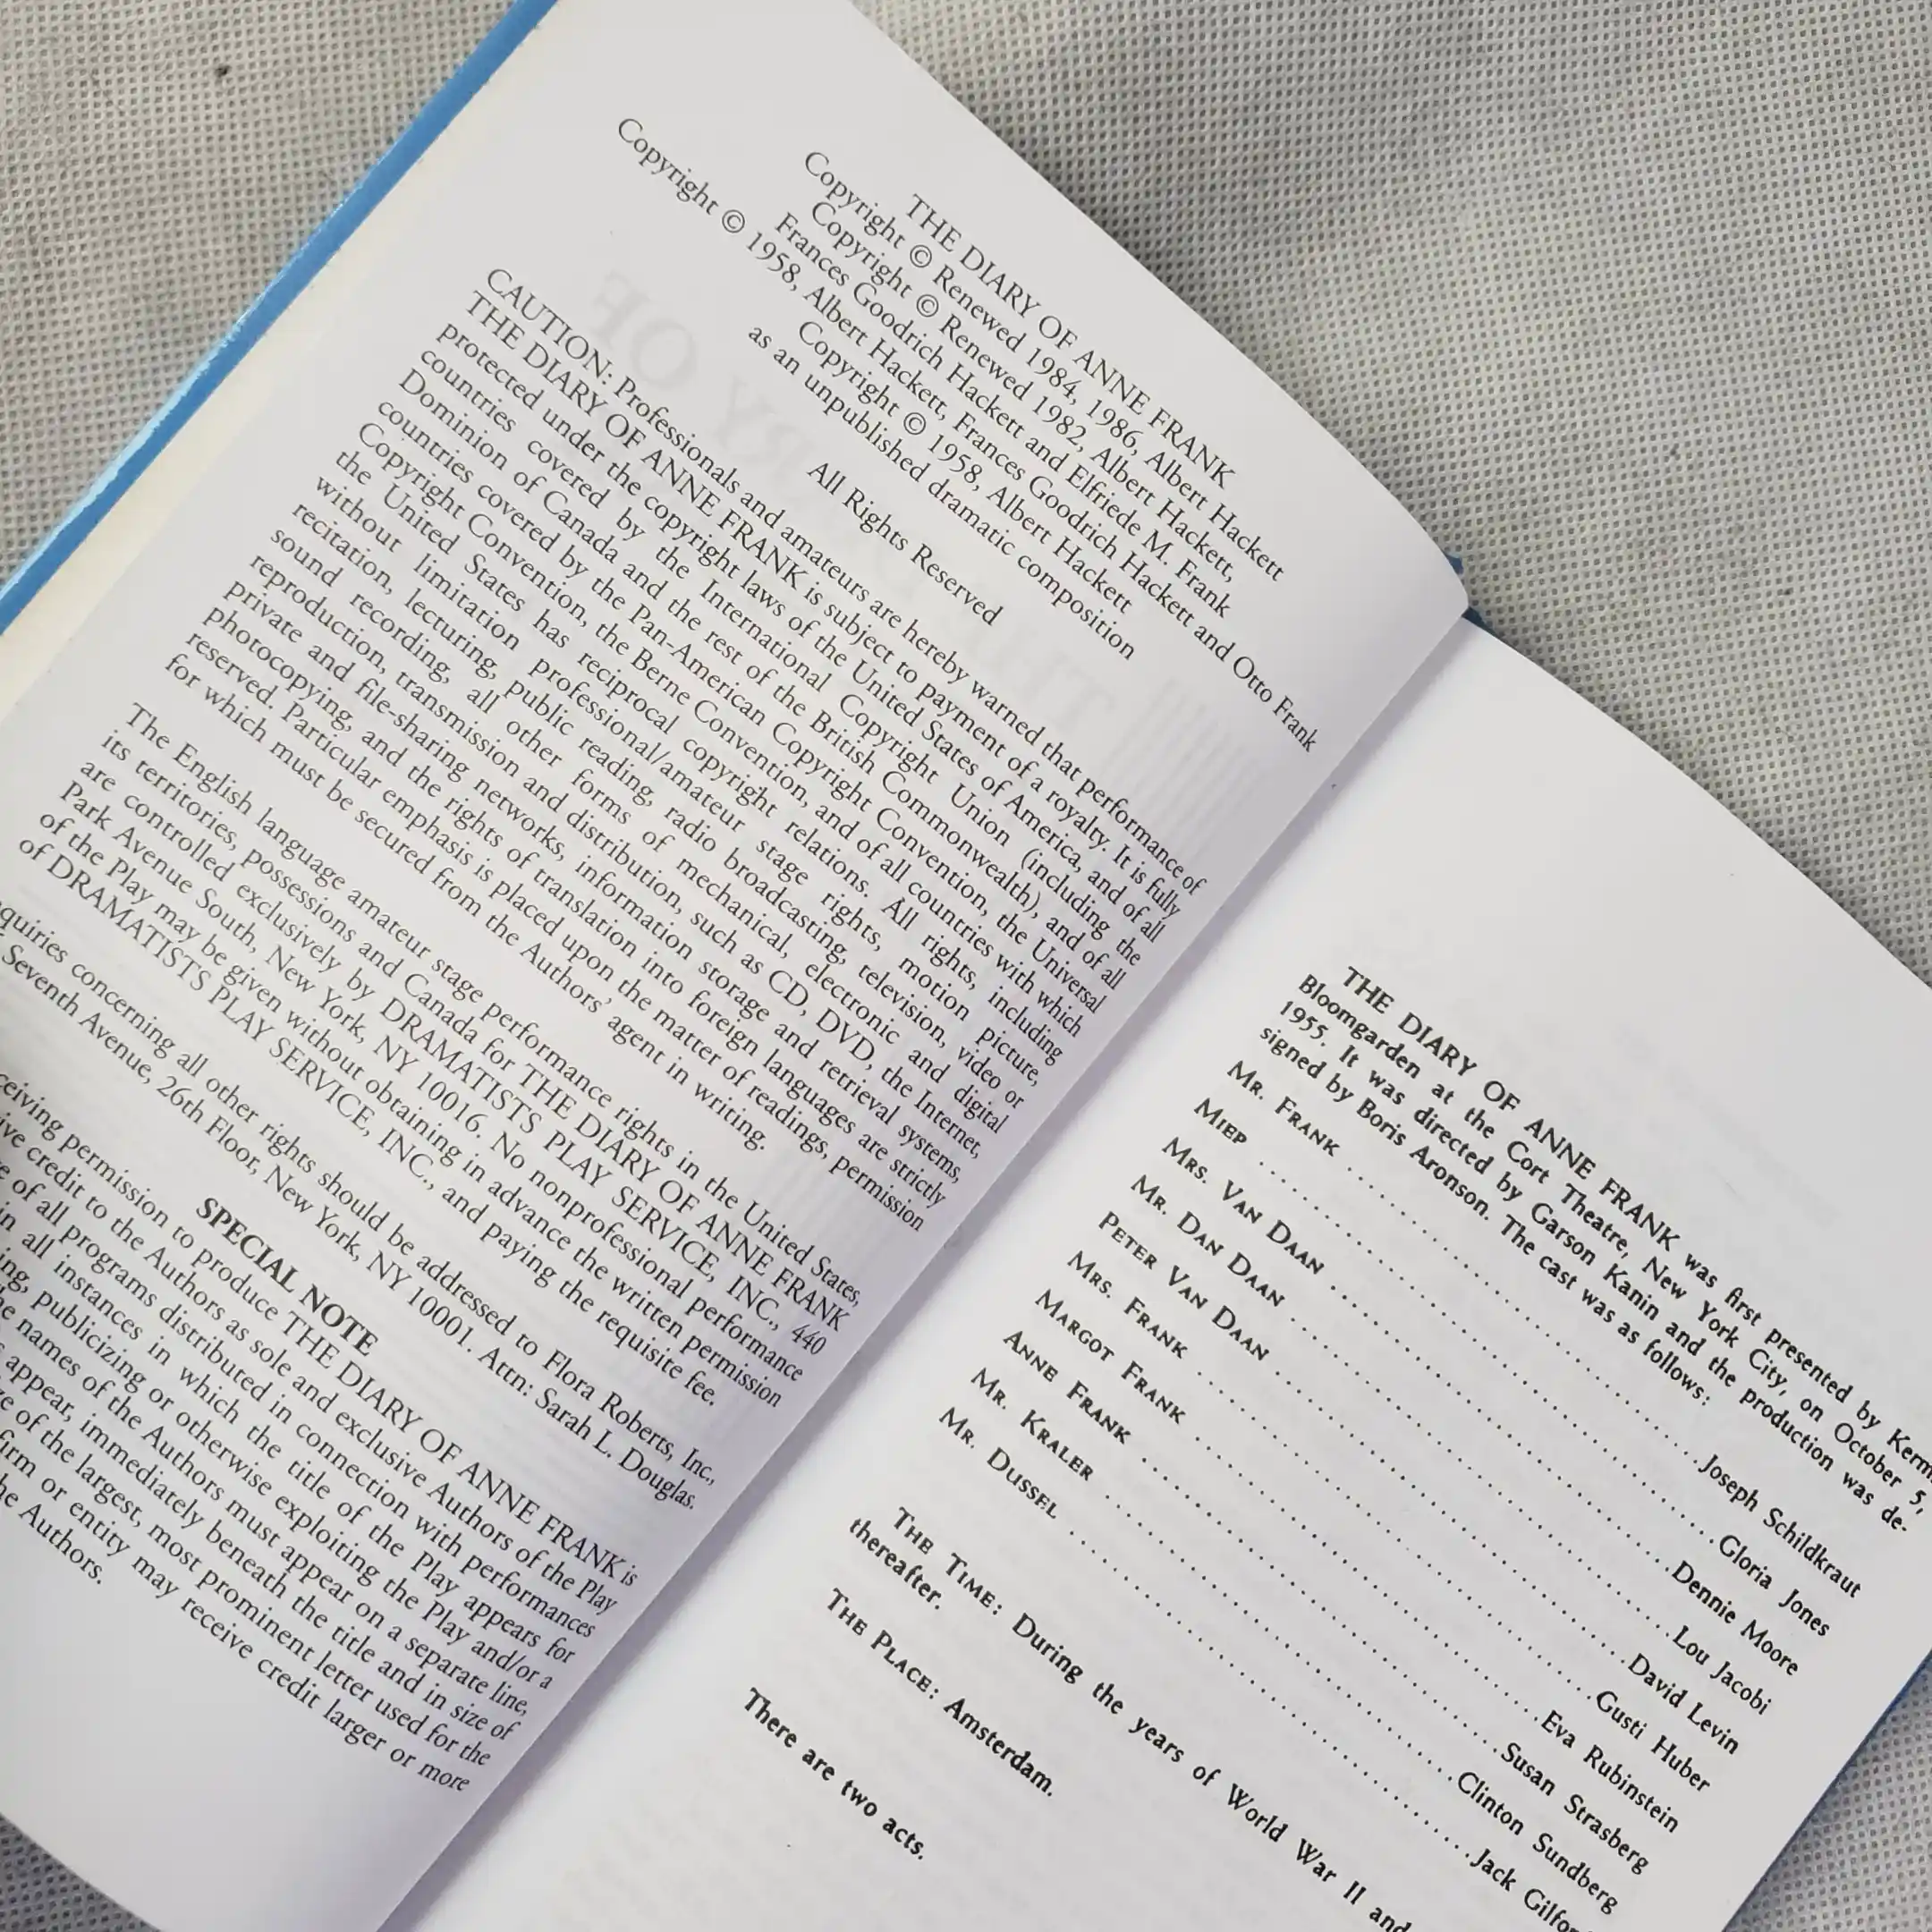 THE DIARY OF ANNE FRANK
Copyright © Renewed 1984, 1986, Albert Hackett
Copyright © Renewed 1982, Albert Hackett,
Frances Goodrich Hackett and Elfriede M. Frank
Copyright © 1958, Albert Hackett, Frances Goodrich Hackett and Otto Frank
Copyright © 1958, Albert Hackett
as an unpublished dramatic composition
All Rights Reserved
CAUTION: Professionals and amateurs are hereby warned that performance of
THE DIARY OF ANNE FRANK is subject to payment of a royalty. It is fully
protected under the copyright laws of the United States of America, and of all
countries covered by the International Copyright Union (including the
Dominion of Canada and the rest of the British Commonwealth), and of all
countries covered by the Pan-American Copyright Convention, the Universal
Copyright Convention, the Berne Convention, and of all countries with which
the United States has reciprocal copyright relations. All rights, including
without limitation professional/amateur stage rights, motion picture,
recitation, lecturing, public reading, radio broadcasting, television, video or
sound recording, all other forms of mechanical, electronic and digital
reproduction, transmission and distribution, such as CD, DVD, the Internet,
private and file-sharing networks, information storage and retrieval systems,
photocopying, and the rights of translation into foreign languages are strictly
reserved. Particular emphasis is placed upon the matter of readings, permission
for which must be secured from the Authors' agent in writing.
The English language amateur stage performance rights in the United States,
its territories, possessions and Canada for THE DIARY OF ANNE FRANK
are controlled exclusively by DRAMATISTS PLAY SERVICE, INC., 440
Park Avenue South, New York, NY 10016. No nonprofessional performance
of the Play may be given without obtaining in advance the written permission
of DRAMATISTS PLAY SERVICE, INC., and paying the requisite fee.
concerning all other rights should be addressed to Flora Roberts, Inc.,
Seventh Avenue, 26th Floor, New York, NY 10001. Attn: Sarah L. Douglas.
SPECIAL NOTE
permission to produce THE DIARY OF ANNE FRANK is
credit to the Authors as sole and exclusive Authors of the Play
of all programs distributed in connection with performances
in all instances in which the title of the Play appears for
publicizing or otherwise exploiting the Play and/or a
names of the Authors must appear on a separate line,
appear, immediately beneath the title and in size of
of the largest, most prominent letter used for the
firm or entity may receive credit larger or more
Authors.
THE DIARY OF ANNE FRANK was first presented by
Bloomgarden at the Cort Theatre, New York City, on October 5,
1955. It was directed by Garson Kanin and the production was de-
signed by Boris Aronson. The cast was as follows:
MR. FRANK ........ Joseph Schildkraut
MIEP ........ Gloria Jones
MRS. VAN DAAN ........ Dennie Moore
MR. DAN DAAN ........ Lou Jacobi
PETER VAN DAAN ........ David Levin
MRS. FRANK ........ Gusti Huber
MARGOT FRANK ........ Eva Rubinstein
ANNE FRANK ........ Susan Strasberg
MR. KRALER ........ Clinton Sundberg
MR. DUSSEL ........ Jack
THE TIME: During the years of World War II and
thereafter.
THE PLACE: Amsterdam.
There are two acts.